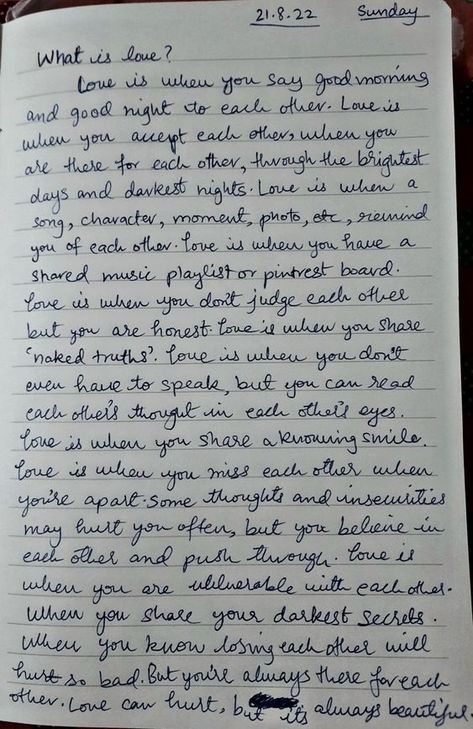 21.8.22 Sunday
What is love?
Love is when you say goodmorning
and good night to each other. Love is
when you accept each other, when you
are there for each other, through the brightest
days and darkest nights. Love is when a
song, character, moment, photo, etc, remind
you of each other. Love is when you have a
shared music playlist or pintrest board.
Love is when you don't judge each other
but you are honest. Love is when you share
'naked truths'. Love is when you don't
even have to speak, but you can read
each other's thought in each other's eyes.
Love is when you share a knowing smile.
Love is when you miss each other when
you're apart. Some thoughts and insecurities
may hurt you often, but you believe in
each other and push through. Love is
when you are vulnerable with each other.
When you share your darkest secrets.
When you know losing each other will
hurt so bad. But you're always there for each
other. Love can hurt, but its always beautiful.